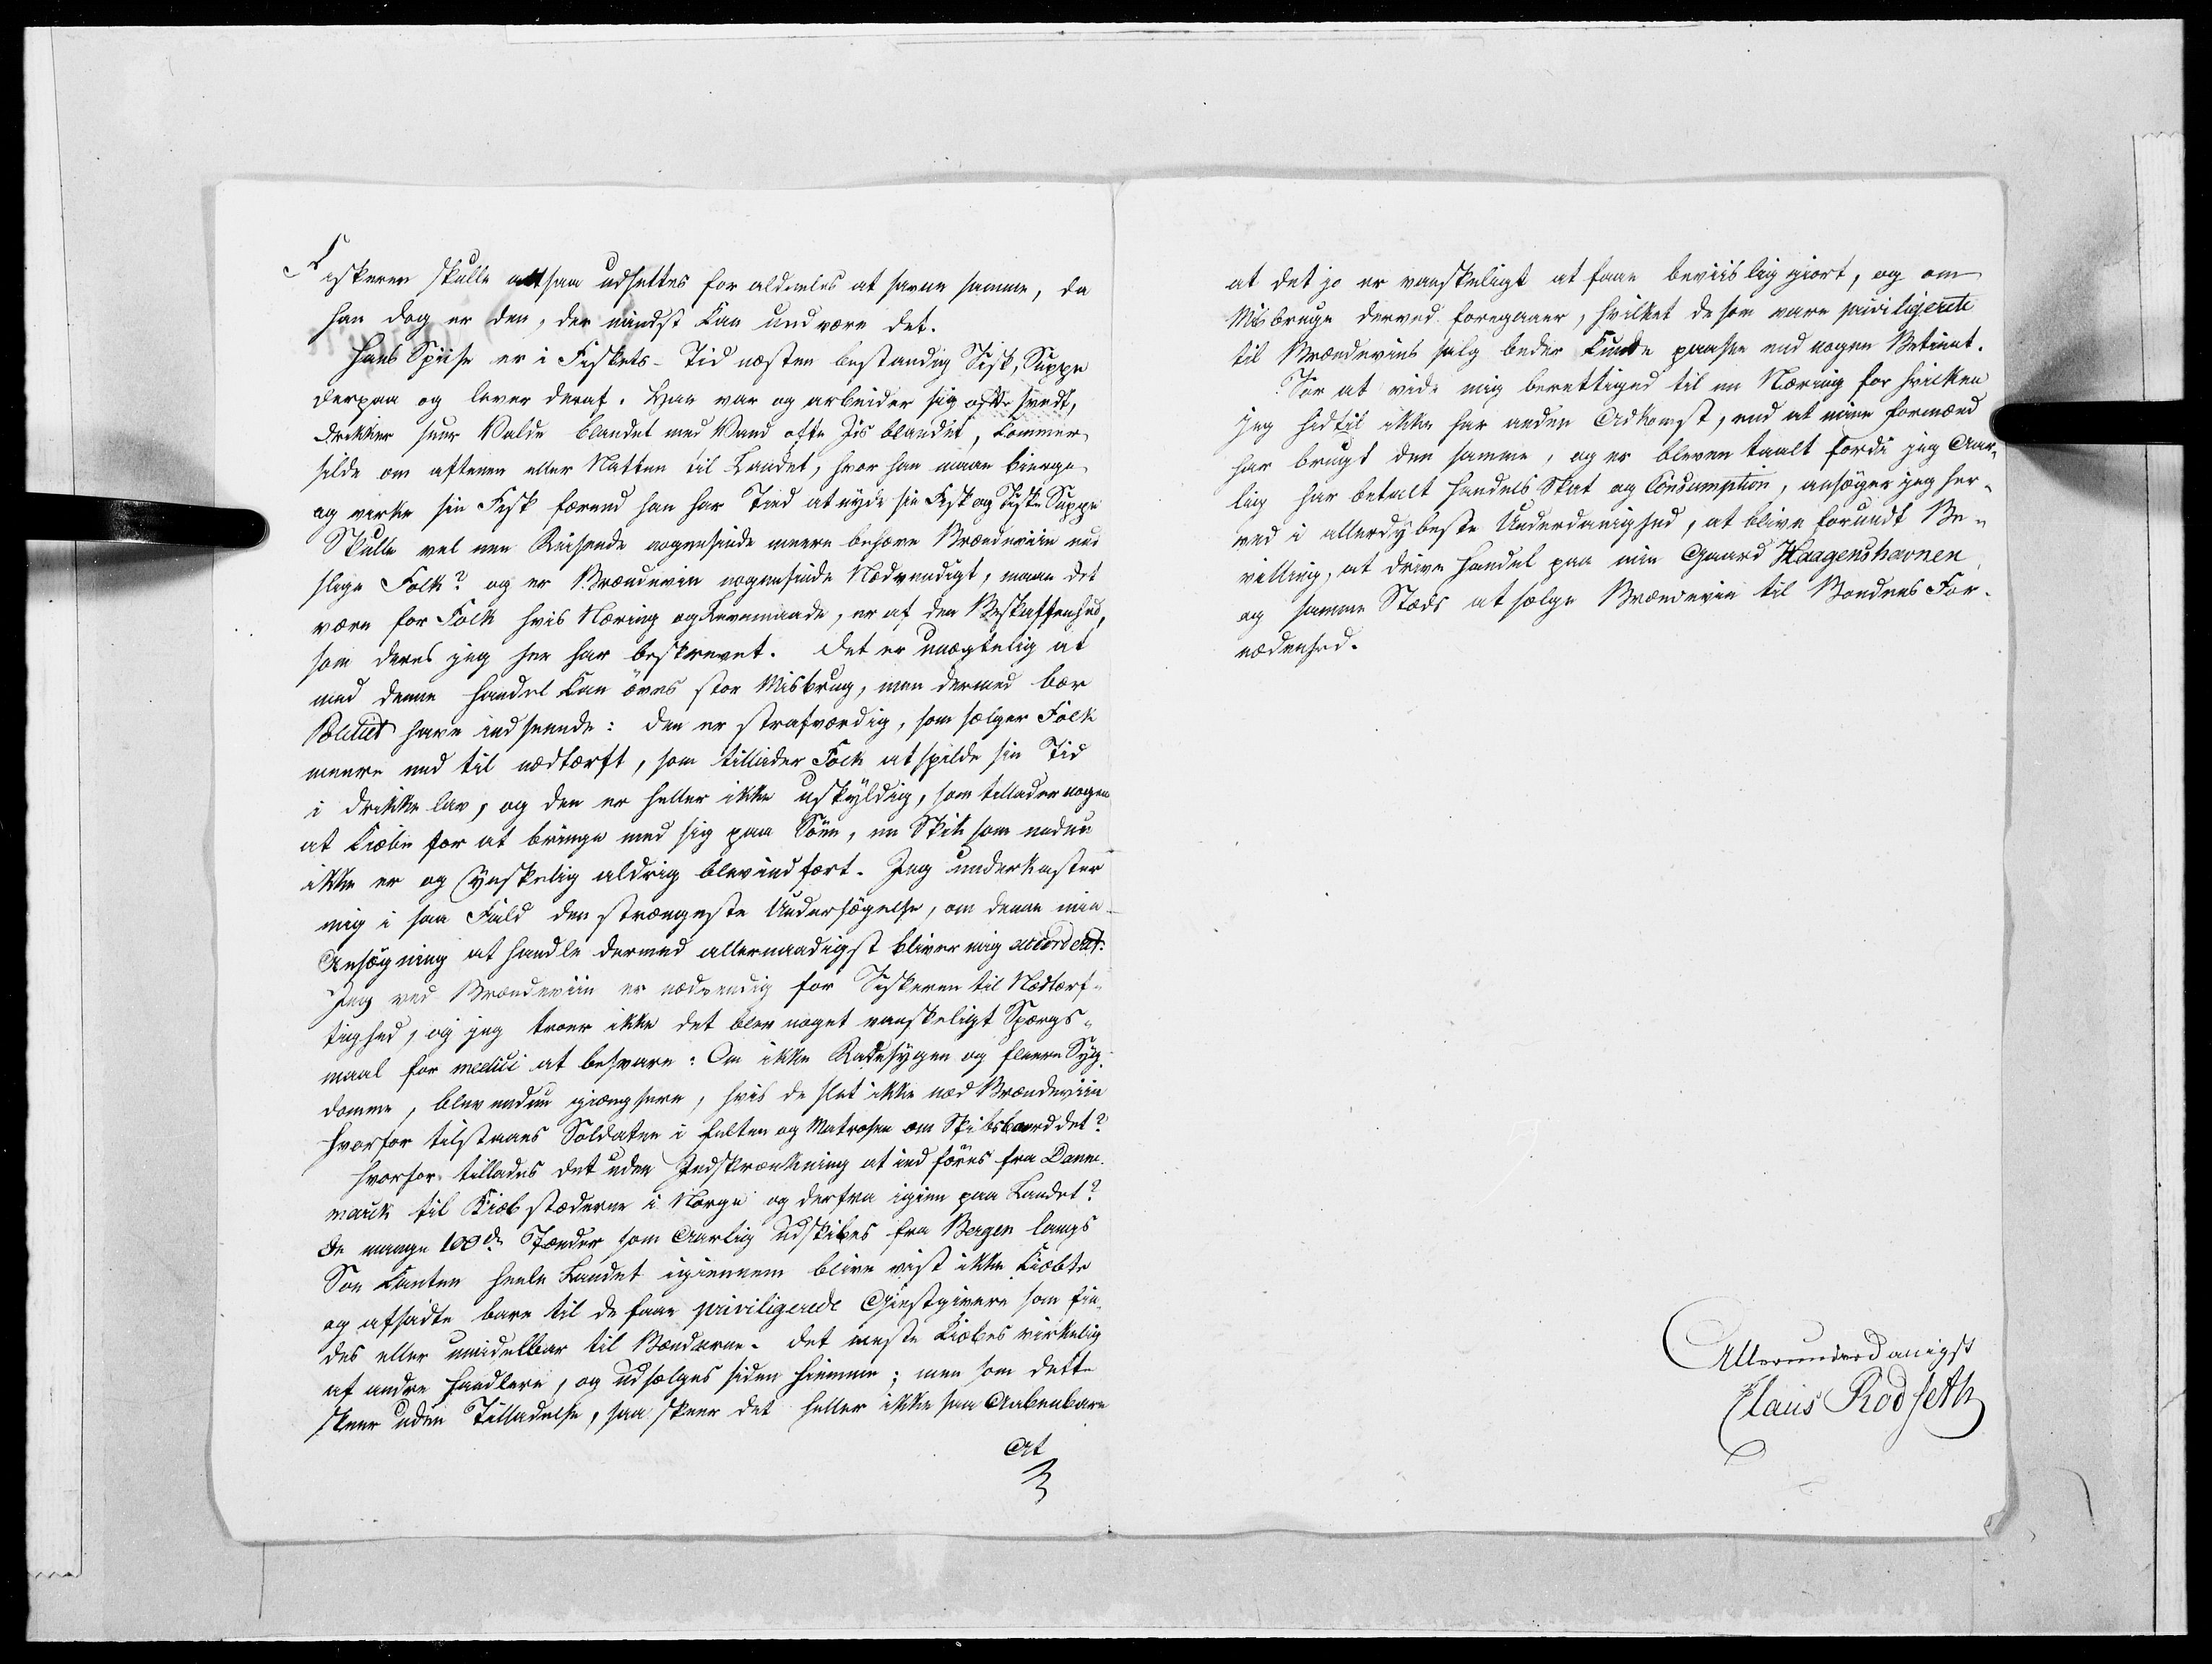 Fiskeren skulle altsaa udsættes for aldeeles at savne samme, da
han dog er den, der mindst kan undvære det.
Hans Spiise er i Fiskets-Tid næsten bestandig Fisk, Suppe
derpaa og lever deraf. Han var og arbeider sig ofte svedt,
drikker suur Valde blandet med Vand ofte Jis blandet, kommer
silde om aftenen eller Natten til Landet, hvor han maae bierge
og virke sin Fisk førend han har Tied at nyde sin Fisk og Fiske Suppe
Skulle vel een Reisende nogensinde meere behøve Brændeviin end
slige Folk? og er Brændeviin nogensinde Nødvendigt, maae det
være for Folk hvis Næring og Levemaade, er af den Beskaffenhed,
som deres jeg her har beskrevet. Det er unægtelig at
med denne Handel kan öves stor Misbrug, men dermed bør
Politiet have indseende: den er strafværdig, som sælger Folk
meere end til nødtørft, som tillader Folk at spilde sin Tid
i drikke lav, og den er heller ikke uskyldig, som tillader nogen
at kiøbe for at bringe med sig paa Söen, en Skik som endnu
ikke er og Ønskelig aldrig blev indført. Jeg underkaster
mig i saa Fald den strængeste Undersøgelse, om denne min
Ansøgning at handle dermed allernaadigst bliver mig accorderet.
Jeg ved Brændeviin er nødvendig for Fiskeren til Nødtørf-
tighed, og jeg troer ikke det blev noget vanskeligt Spørgs-
maal for medici at besvare: Om ikke Radesygen og fleere Syg-
domme, blev endnu giængsere, hvis de slet ikke nød Brændeviin
hvorfor tilstaaes Soldaten i felten og Matrosen om Skibsboord det?
Hvorfor tillades det uden Indskrænkning at ind föres fra Danne-
mark til Kiøbstæderne i Norge og derfra igien paa Landet?
De mange 100de Tønder som Aarlig udskibes fra Bergen langs
Søe Kanten heele Landet igiennem blive vist ikke kiøbte
og afsadte bare til de faae priviligerede Giestgivere som fin-
des eller umidelbar til Bønderne. det meste kiøbes virkelig
af andre Handlere, og udsælges siden hiemme; men som dette
skeer uden Tilladelse, saa skeer det heller ikke saa Aabenbare
At
at det jo er vanskeligt at faae beviislig giort, og om
Misbruge derved foregaaer, hvilket de som vare priviligerte
til Brændeviins salg beder kunde paasee end nogen Betient.
For at vide mig berettiget til en Næring for hvilken
jeg hidtil ikke har anden Adkomst, end at mine formænd
har brugt den samme, og er bleven taalt fordi jeg Aar-
lig har betalt Handels Skat og Consumption, ansøger jeg her-
ved i allerdybeste Underdanighed, at blive forundt Be-
villing, at drive Handel paa min Gaard Haagenshavnen
og samme Stæds at sælge Brændeviin til Bondens For-
nødenhed.
Allerunderdanigst
Claus Rodseth